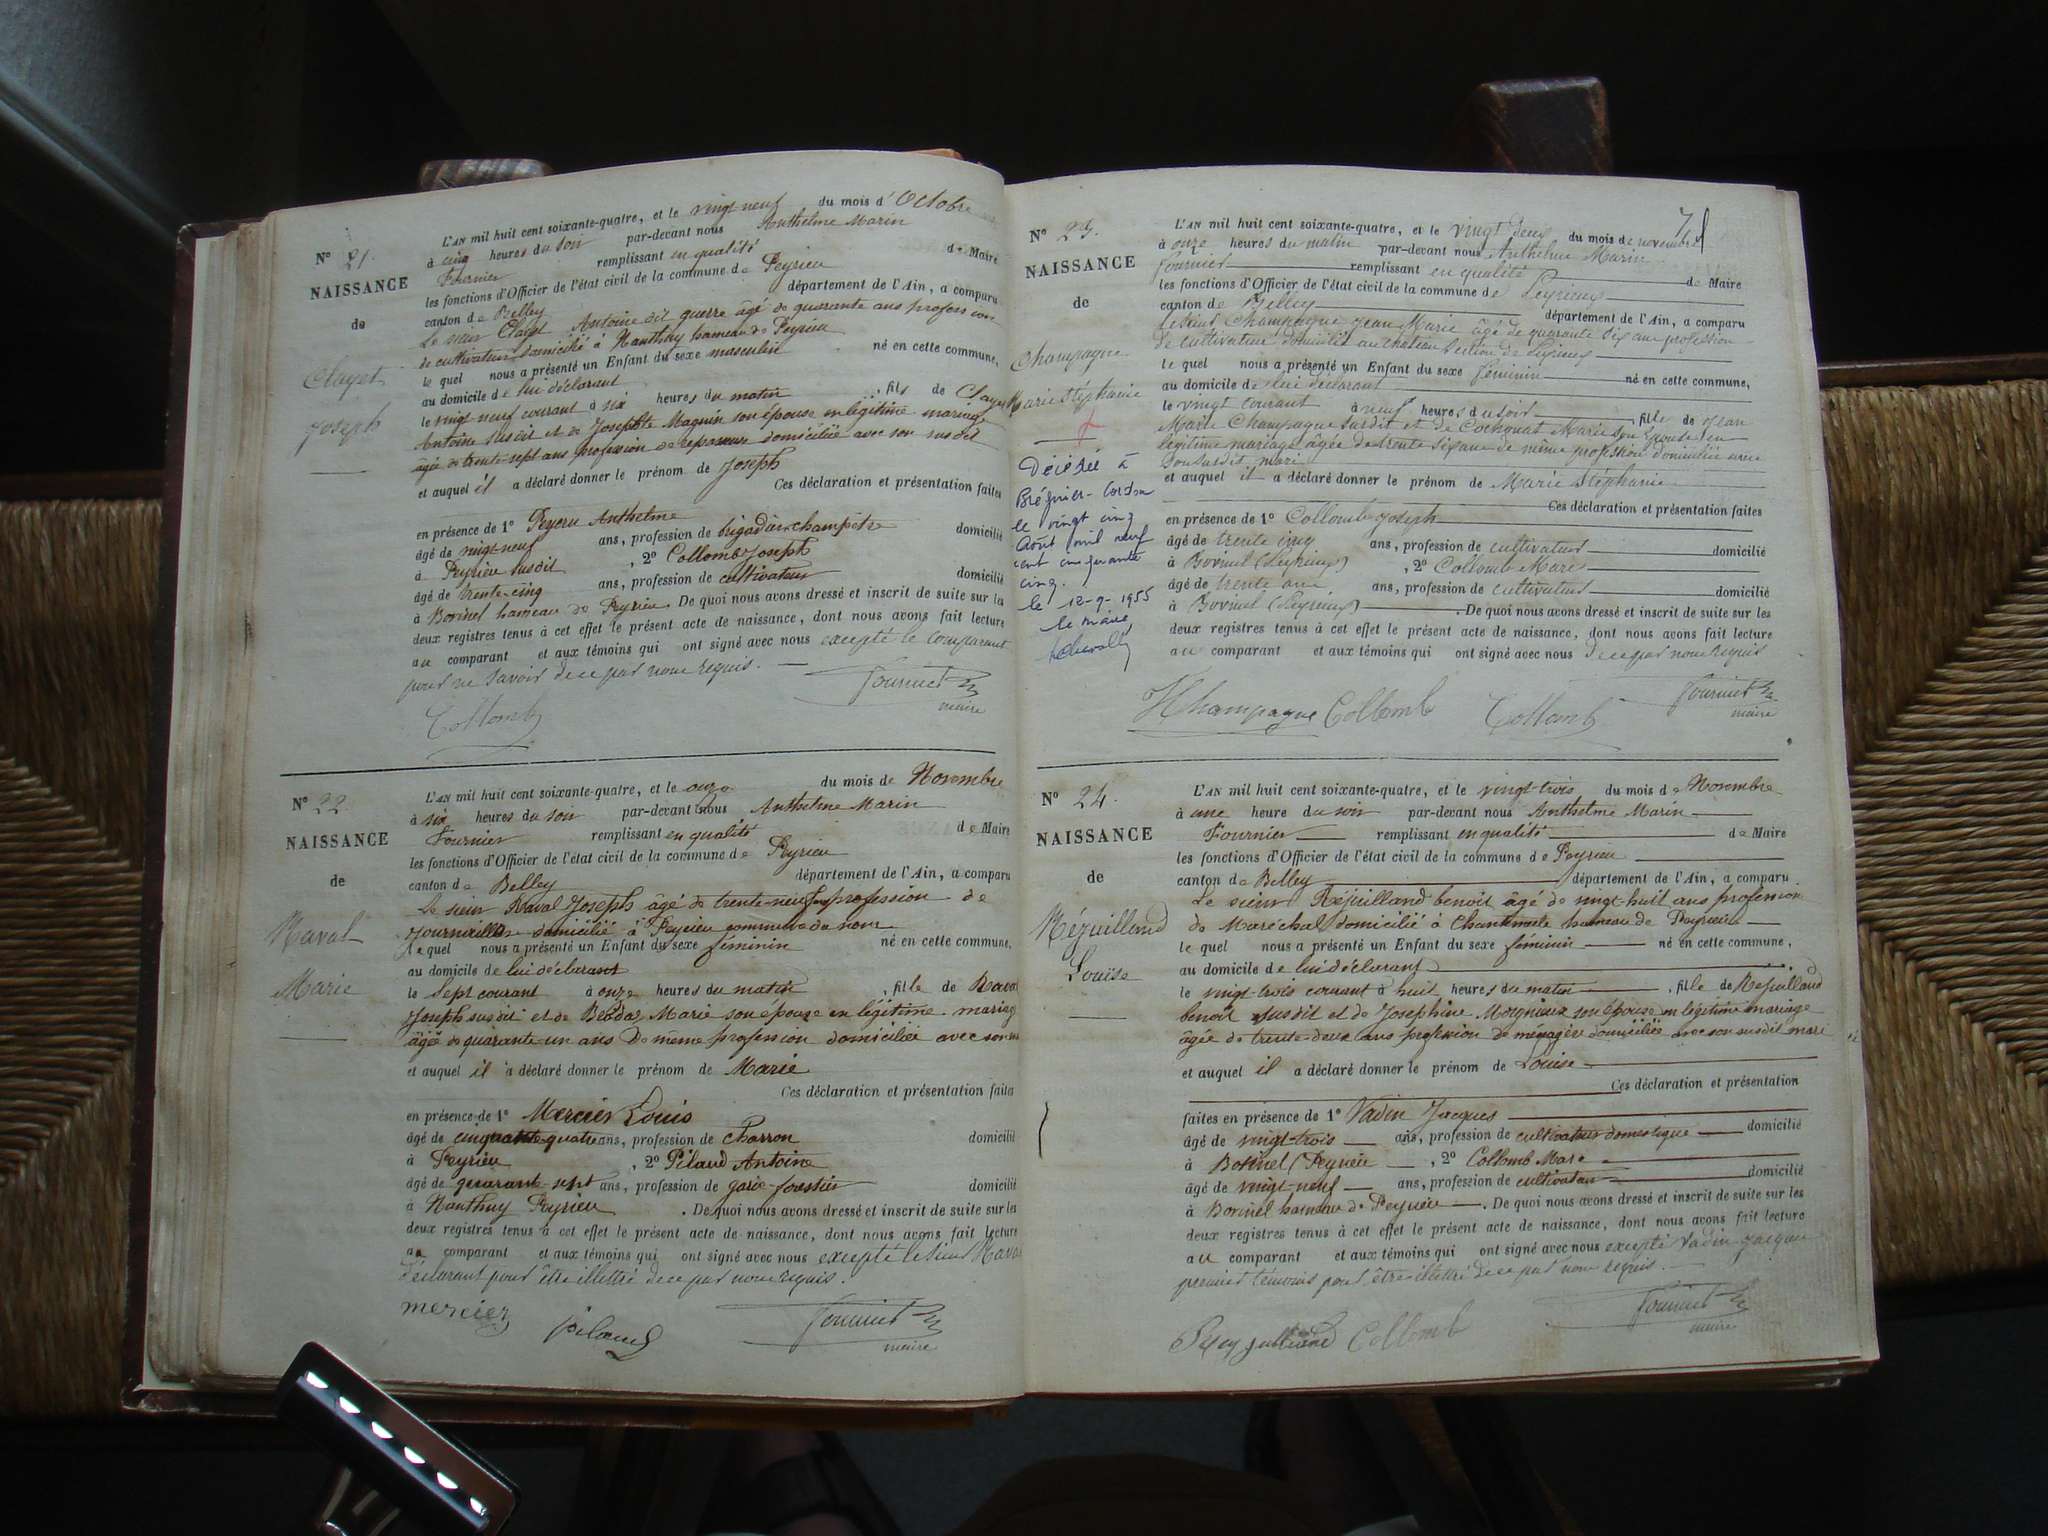 N° 21.
NAISSANCE
de
Clayet
Joseph
L'AN mil huit cent soixante-quatre, et le vingt neuf du mois d'Octobre
à cinq heures du soir par-devant nous Anthelme Marin
Fournier remplissant en qualité de Maire
les fonctions d'Officier de l'état civil de la commune de Peyrieu
canton de Belley département de l'Ain, a comparu
Le sieur Clayet Antoine dit guerre âgé de quarante ans profession
de cultivateur domicilié à Nanthuy hameau de Peyrieu
le quel nous a présenté un Enfant du sexe masculin né en cette commune,
au domicile de lui déclarant
le vingt neuf courant à six heures du matin , fils de Clayet
Antoine susdit et de Josephte Magnin son épouse en légitime mariage
âgée de trente-sept ans profession de repasseuse domiciliée avec son susdit
et auquel il a déclaré donner le prénom de Joseph
Ces déclaration et présentation faites
en présence de 1° Peyeru Anthelme
âgé de vingt-neuf ans, profession de bigadier-champêtre domicilié
à Peyrieu susdit , 2° Collomb Joseph
âgé de trente-cinq ans, profession de cultivateur domicilié
à Bovinel hameau de Peyrieu. De quoi nous avons dressé et inscrit de suite sur les
deux registres tenus à cet effet le présent acte de naissance, dont nous avons fait lecture
au comparant et aux témoins qui ont signé avec nous excepté le comparant
pour ne savoir de ce par nous requis.
Collomb
Fournier
maire
N° 22.
NAISSANCE
de
Raval
Marie
L'AN mil huit cent soixante-quatre, et le onze du mois de Novembre
à six heures du soir par-devant nous Anthelme Marin
Fournier remplissant en qualité de Maire
les fonctions d'Officier de l'état civil de la commune de Peyrieu
canton de Belley département de l'Ain, a comparu
Le sieur Raval Joseph âgé de trente-neuf profession de
journailler domicilié à Peyrieu commune de nom
le quel nous a présenté un Enfant du sexe féminin né en cette commune,
au domicile de lui déclarant
le sept courant à onze heures du matin , fille de Raval
Joseph susdit et de Marie son épouse en légitime mariage
âgée de quarante-un ans De même profession domiciliée avec son
et auquel il a déclaré donner le prénom de Marie
Ces déclaration et présentation faites
en présence de 1° Mercier Louis
âgé de cinquante-quatre ans, profession de Charron domicilié
à Peyrieu , 2° Pilaud Antoine
âgé de quarante-sept ans, profession de garde-forestier domicilié
à Nanthuy Peyrieu . De quoi nous avons dressé et inscrit de suite sur les
deux registres tenus à cet effet le présent acte de naissance, dont nous avons fait lecture
au comparant et aux témoins qui ont signé avec nous excepté le sieur Raval
déclarant pour être illettré de ce par nous requis.
mercier
pilaud
Fournier
maire
N° 23.
NAISSANCE
de
Champagne
Marie Stéphanie
Décédée à
Brégnier-Cordon
le vingt cinq
Août mil neuf
cent cinquante
cinq.
le 12-9-1955
le maire,
L'AN mil huit cent soixante-quatre, et le vingt deux du mois de novembre
à onze heures du matin par-devant nous Anthelme Marin
Fournier remplissant en qualité de Maire
les fonctions d'Officier de l'état civil de la commune de Peyrieux
canton de Belley département de l'Ain, a comparu
Le sieur Champagne Jean Marie âgé de quarante six ans profession
de cultivateur domicilié au château section de Peyrieux
le quel nous a présenté un Enfant du sexe féminin né en cette commune,
au domicile de lui déclarant
le vingt courant à neuf heures du soir , fille de Jean
Marie Champagne susdit et de Cochonat Marie son épouse en
légitime mariage âgée de trente six ans de même profession domiciliée avec
son susdit mari
et auquel il a déclaré donner le prénom de Marie Stéphanie
Ces déclaration et présentation faites
en présence de 1° Collomb Joseph
âgé de trente cinq ans, profession de cultivateur domicilié
à Bovinel (Peyrieux) , 2° Collomb Marc
âgé de trente ans, profession de cultivateur domicilié
à Bovinel (Peyrieux) . De quoi nous avons dressé et inscrit de suite sur les
deux registres tenus à cet effet le présent acte de naissance, dont nous avons fait lecture
au comparant et aux témoins qui ont signé avec nous de ce par nous requis
Champagne Collomb Collomb Fournier
maire
N° 24.
NAISSANCE
de
Réjuilland
Louise
L'AN mil huit cent soixante-quatre, et le vingt-trois du mois de Novembre
à une heure du soir par-devant nous Anthelme Marin
Fournier remplissant en qualité de Maire
les fonctions d'Officier de l'état civil de la commune de Peyrieu
canton de Belley département de l'Ain, a comparu
Le sieur Réjuilland benoit âgé de vingt-huit ans profession
de Maréchal domicilié à Chantemerle hameau de Peyrieu
le quel nous a présenté un Enfant du sexe féminin né en cette commune,
au domicile de lui déclarant
le vingt-trois courant à huit heures du matin , fille de Réjuilland
benoit susdit et de Josephine Moignieux son épouse en légitime mariage
âgée de trente-deux ans profession de ménagère domiciliée avec son susdit mari
et auquel il a déclaré donner le prénom de Louise
Ces déclaration et présentation
faites en présence de 1° Vadin Jacques
âgé de vingt-trois ans, profession de cultivateur domestique domicilié
à Bovinel (Peyrieu , 2° Collomb Marc
âgé de vingt-neuf ans, profession de cultivateur domicilié
à Bovinel hameau de Peyrieu . De quoi nous avons dressé et inscrit de suite sur les
deux registres tenus à cet effet le présent acte de naissance, dont nous avons fait lecture
au comparant et aux témoins qui ont signé avec nous excepté Vadin Jacques
premier témoins pour être illettré de ce par nous requis.
Collomb
Fournier
maire